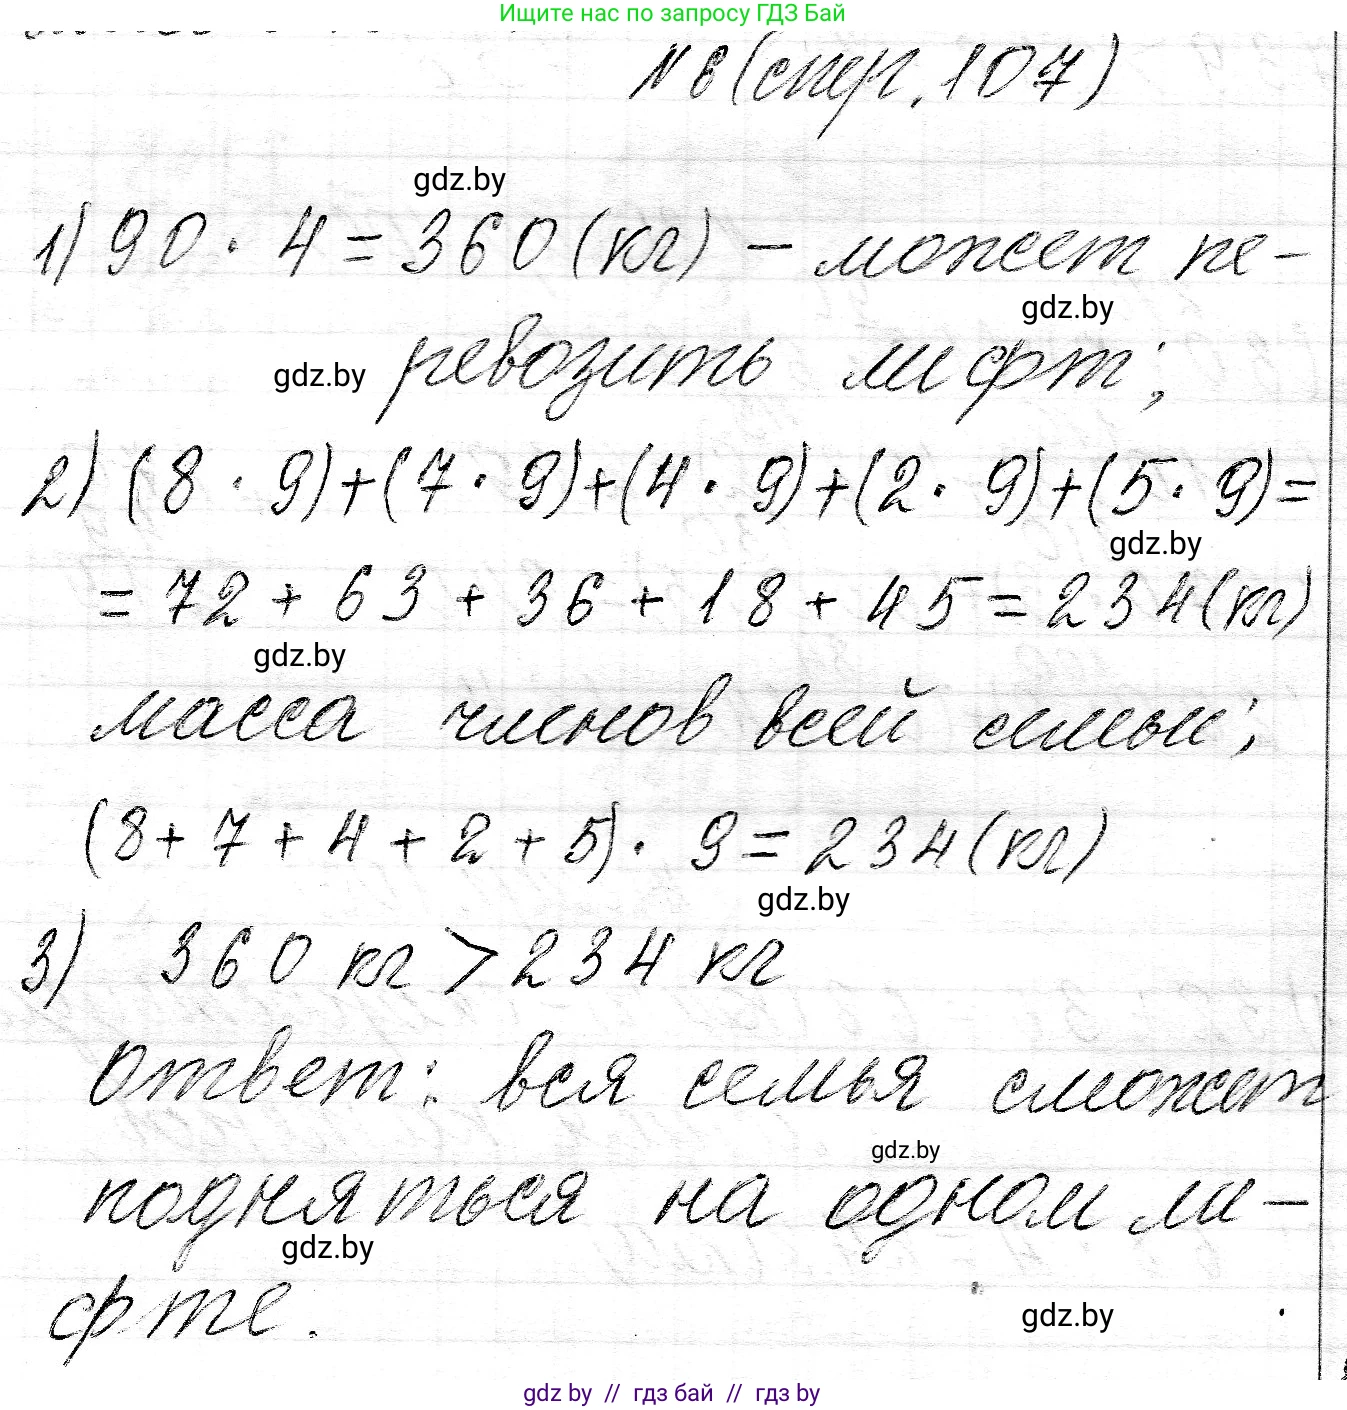 Ищите нас по запросу ГДЗ Бай
№ 8 (стр. 107)
gdz.by
1) 90 · 4 = 360 (кг) – может пе-
gdz.by
ревозить лифт;
gdz.by
2) (8 · 9)+(7 · 9)+(4 · 9)+(2 · 9)+(5 · 9)=
gdz.by
= 72 + 63 + 36 + 18 + 45 = 234 (кг)
gdz.by
масса членов всей семьи;
(8 + 7 + 4 + 2 + 5) · 9 = 234 (кг)
gdz.by
3) 360 кг > 234 кг
Ответ: вся семья сможет
gdz.by
подняться на одном ли-
gdz.by
фте.
gdz.by
gdz by // гдз бай // гдз by